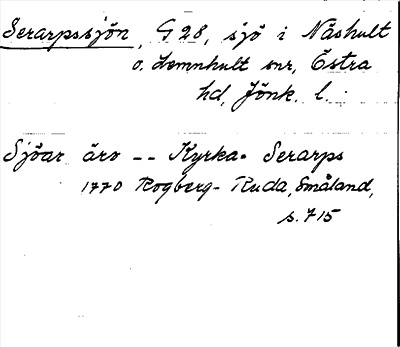 Serarpssjön, G 28, sjö i Näshult
o. Lemnhult snr, Östra
hd, Jönk. l.
Sjöar äro -- Kyrka. Serarps
1770 Rogberg-Ruda, Småland,
s. 715